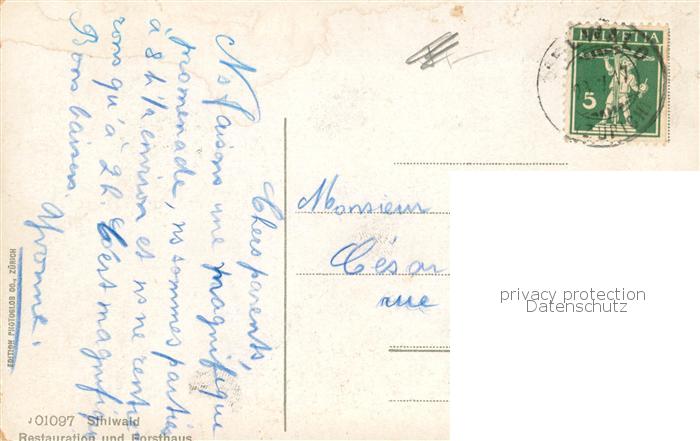 Chers parents,
Ns faisons une magnifique
promenade, ns sommes partis
à 8 h ½ environ et ns ne rentre
rons qu'à 2 h. C'est magnifique
Bons baisers.
Yvonne.
Monsieur
César
rue
HELVETIA
5
privacy protection
Datenschutz
EDITION PHOTOGLOB CO., ZÜRICH
J01097 Sihlwald
Restauration und Forsthaus